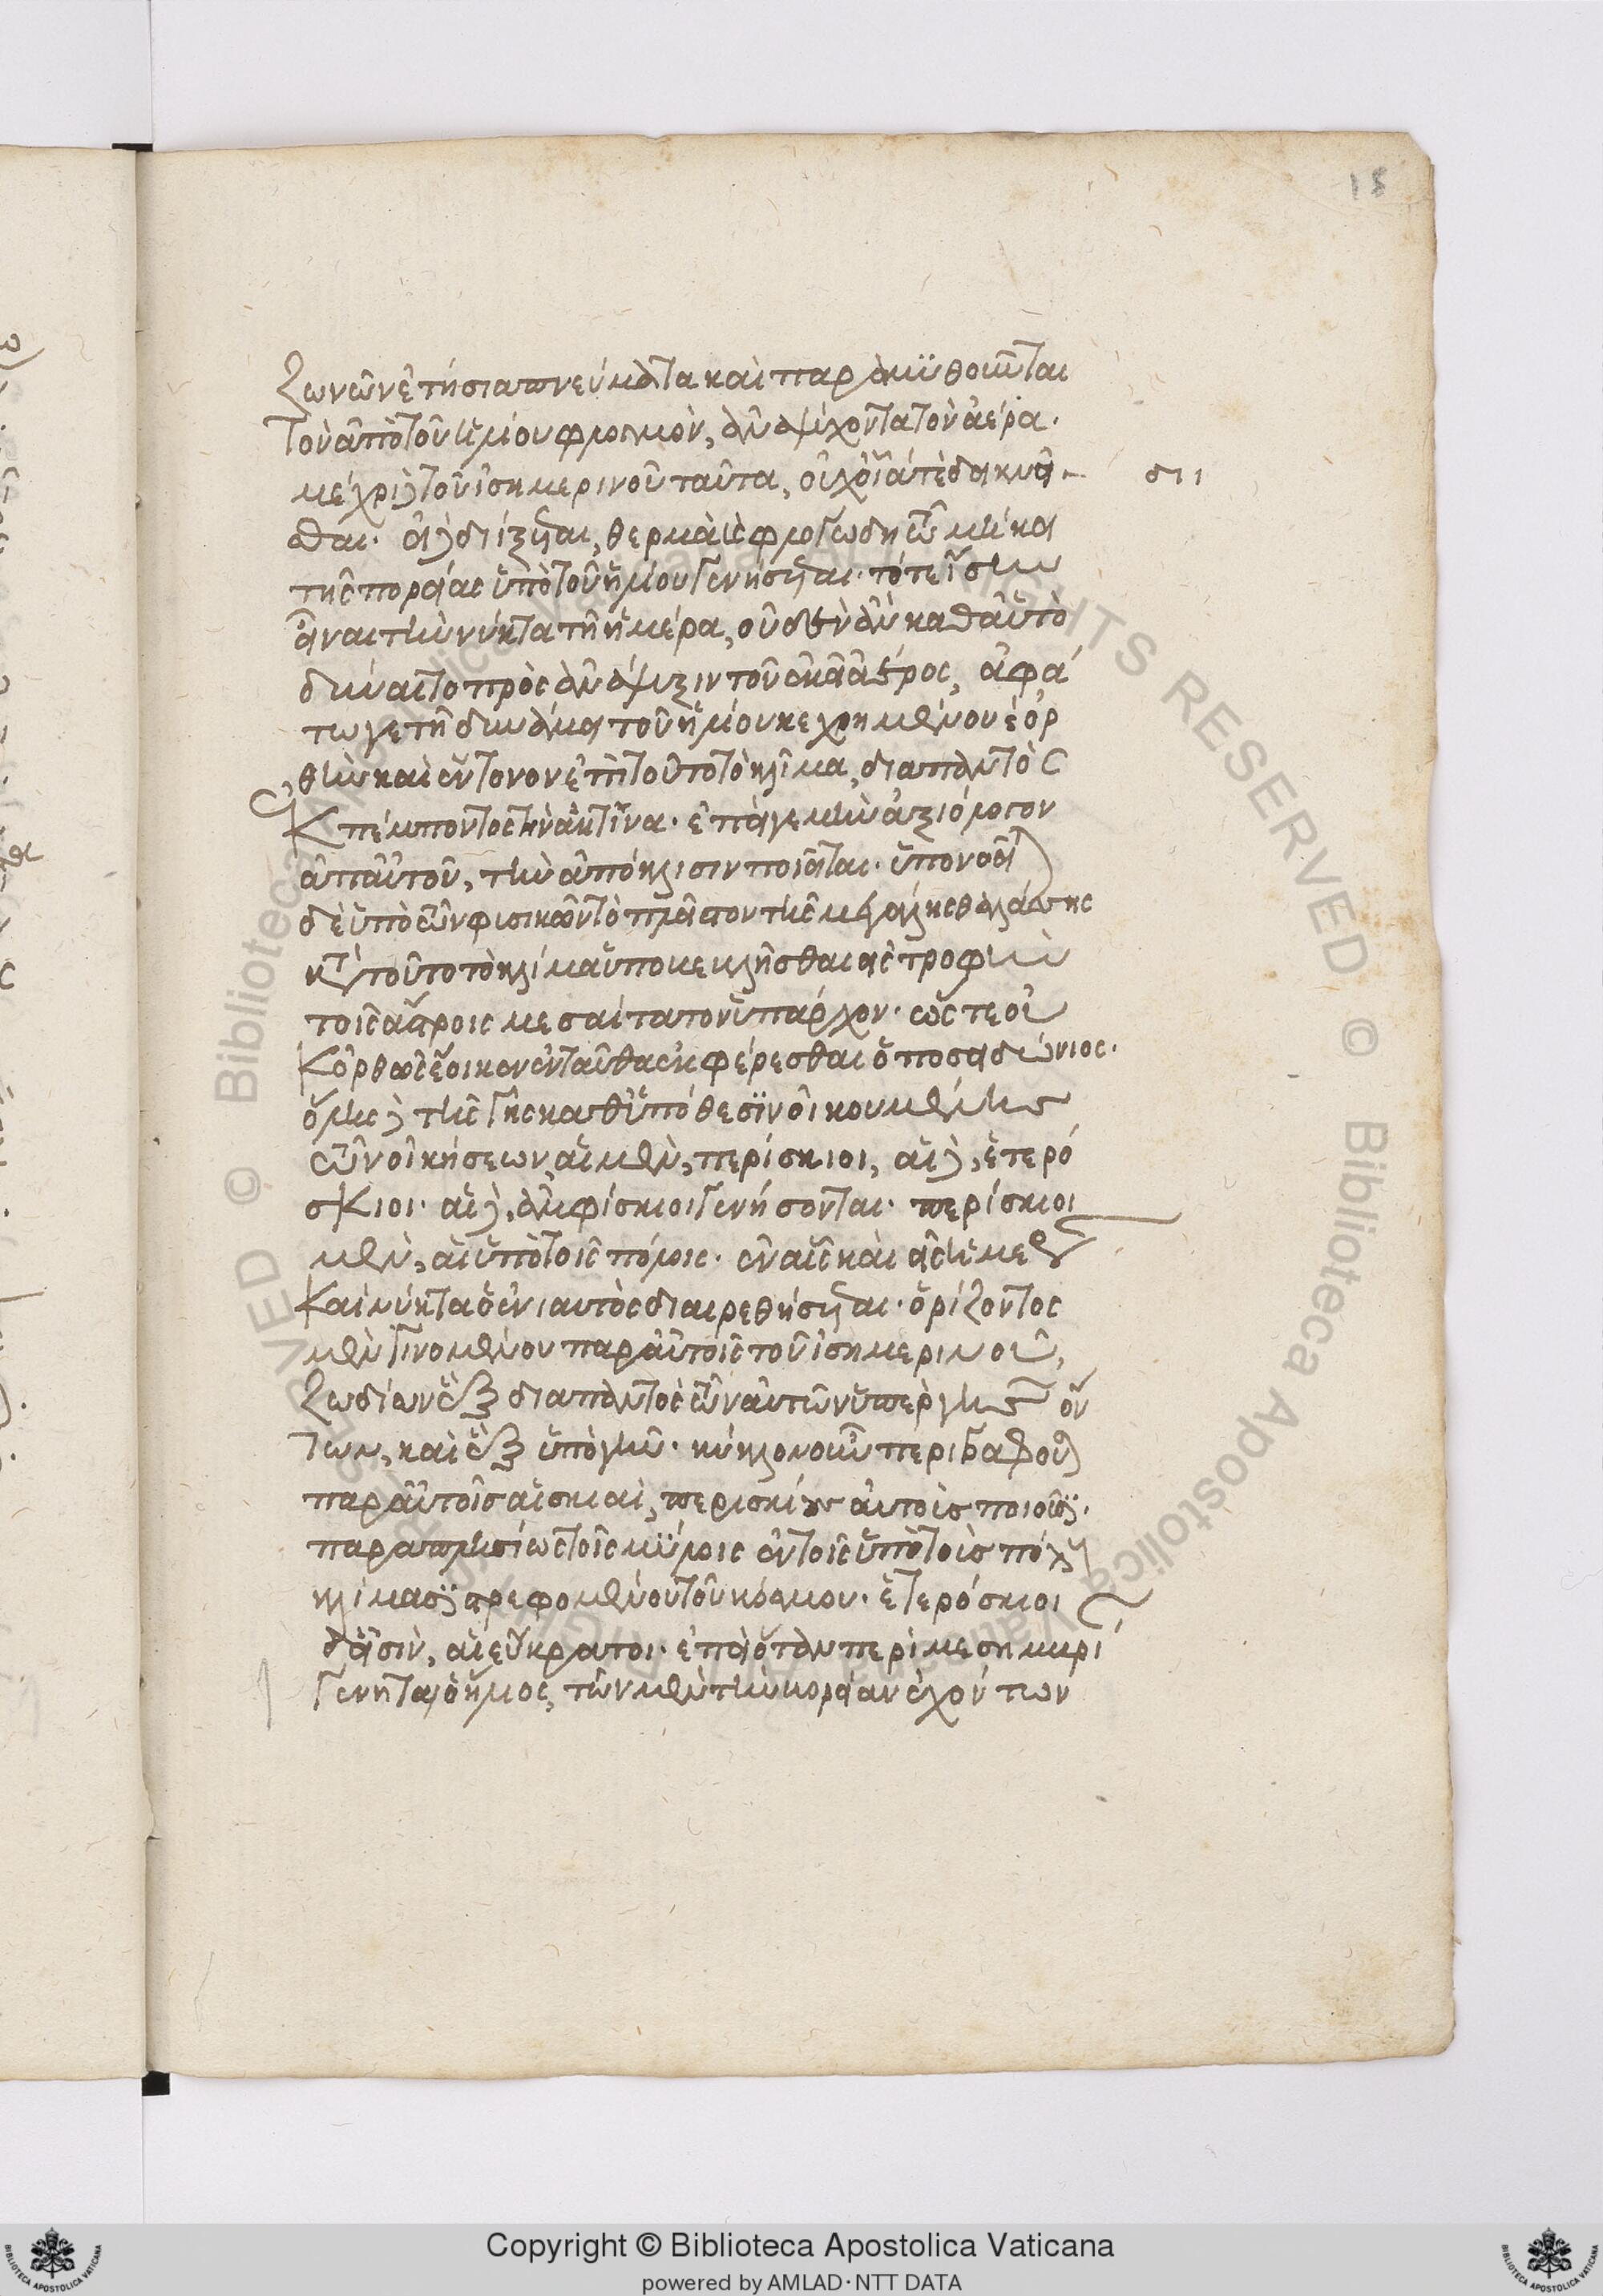 18
ζωνῶν ἐτήσια πνεύματα καὶ παραμυθοῦνται
τὸν ἀπὸ τοῦ ἡλίου φλογμὸν, ἀναψύχοντα τὸν ἀέρα.
μέχρι δὲ τοῦ ἰσημερινοῦ ταῦτα, οὐχ οἷά τε διικνεῖ
σθαι. εἰ δὲ διίξεται, θερμὰ καὶ φλογώδη τῶ μήκει
τῆς πορείας ὑπὸ τοῦ ἡλίου γενήσεται. τό τε ἴσην
εἶναι τὴν νύκτα τῆ ἡμέρα, οὐδὲν ἂν καθ αὑτὸ
δύναιτο πρὸς ἀνάψυξιν τοῦ ἐκεῖ ἀέρος,
τω γε τῆ δυνάμει τοῦ ἡλίου κεχρημένου
θὴν καὶ εὔτονον ἐπὶ τοῦτο τὸ κλίμα, διαπαντὸς
πέμποντος τὴν ἀκτῖνα. ἐπεί γε μὴν ἀξιόλογον
ἀπ αὐτοῦ, τὴν ἀπόκλισιν ποιεῖται. ὑπονοεῖται
δὲ ὑπὸ τῶν φυσικῶν τὸ πλεῖστον τῆς μεγάλης θαλάσσης
κατὰ τοῦτο τὸ κλίμα ὑποκεκλῆσθαι εἰς τροφὴν
τοῖς ἄστροις μεσαίτατον ὑπάρχον. ὥς τε οὐ
κ ὀρθῶς ἔοικεν ἐνταῦθα ἐκφέρεσθαι ὁ ποσειδώνιος.
ὅλης δὲ τῆς γῆς καθ ὑπόθεσιν οἰκουμένης
τῶν οἰκήσεων, αἱ μὲν, περίσκιοι, αἱ δὲ, ἑτερό
σκιοι. αἱ δὲ, ἀμφίσκιοι γενήσονται. περίσκιοι
μὲν, αἱ ὑπὸ τοῖς πόλοις. ἐν αἷς καὶ εἰς ἡμέραν
καὶ νύκτα ὁ ἐνιαυτὸς διαιρεθήσεται. ὁρίζοντος
μὲν γινομένου παρ αὐτοῖς τοῦ ἰσημερινοῦ,
ζωδίων ἓξ διαπαντὸς τῶν αὐτῶν ὑπὲρ γῆς ὄν
των, καὶ ἓξ ὑπὸ γῆν. κύκλον οὖν περιγράφουσαι
παρ αὐτοῖς αἱ σκιαὶ, περισκίους αὐτοὺς ποιοῦσι.
παραπλησίως τοῖς μύλοις ἐν τοῖς ὑπὸ τοῖς πόλοις
κλίμασι στρεφομένου τοῦ κόσμου. ἑτερόσκιοι
δ εἰσὶν, αἱ εὔκρατοι. ἐπεὶ ὅταν περὶ μεσημβρί
γένηται ὁ ἥλιος, τῶν μὲν τὴν βορείαν ἐχόντων
Copyright © Biblioteca Apostolica Vaticana
powered by AMLAD·NTT DATA